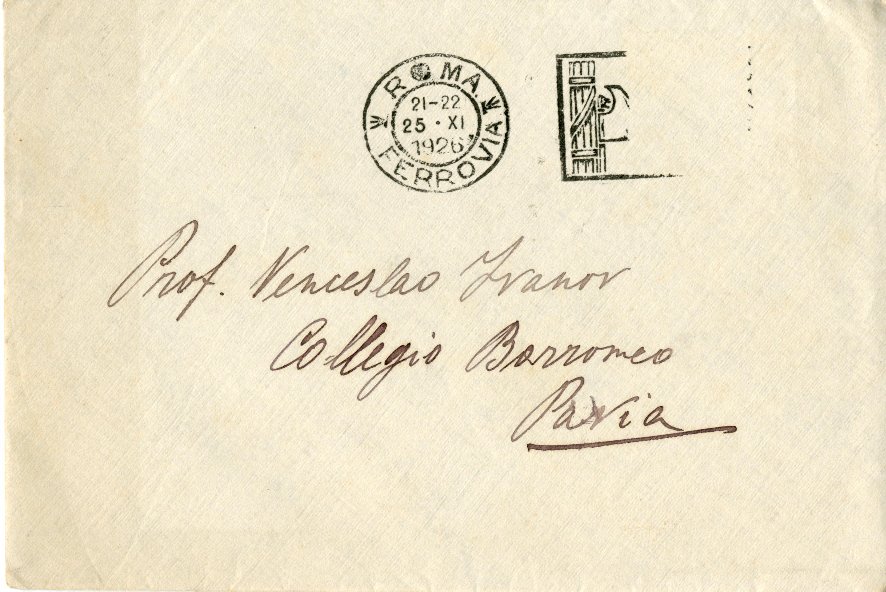 ROMA.
21-22
25 · XI
1926
FERROVIA
Prof. Venceslao Ivanov
Collegio Borromeo
Pavia